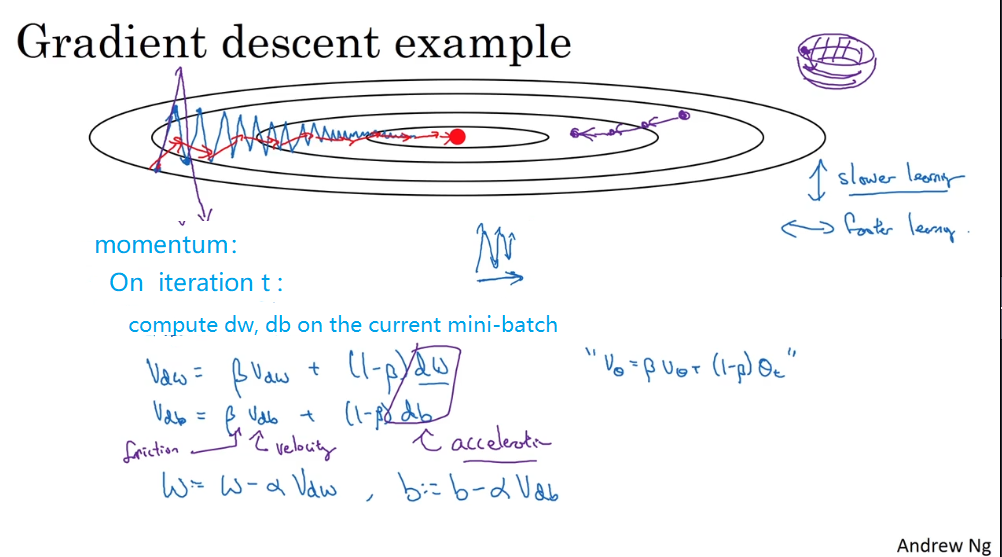 Gradient descent example
slower learning
faster learning.
momentum:
On iteration t :
compute dw, db on the current mini-batch
Vdw = β Vdw + (1-β) dw
"Vθ = β Vθ + (1-β) θt"
Vdb = β Vdb + (1-β) db
friction velocity acceleration
W:= W - α Vdw , b:= b - α Vdb
Andrew Ng